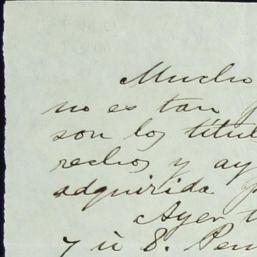 Mucho
no es tan
son los títul
rechos y ay
adquirida
Ayer t
y ù 8. Pen